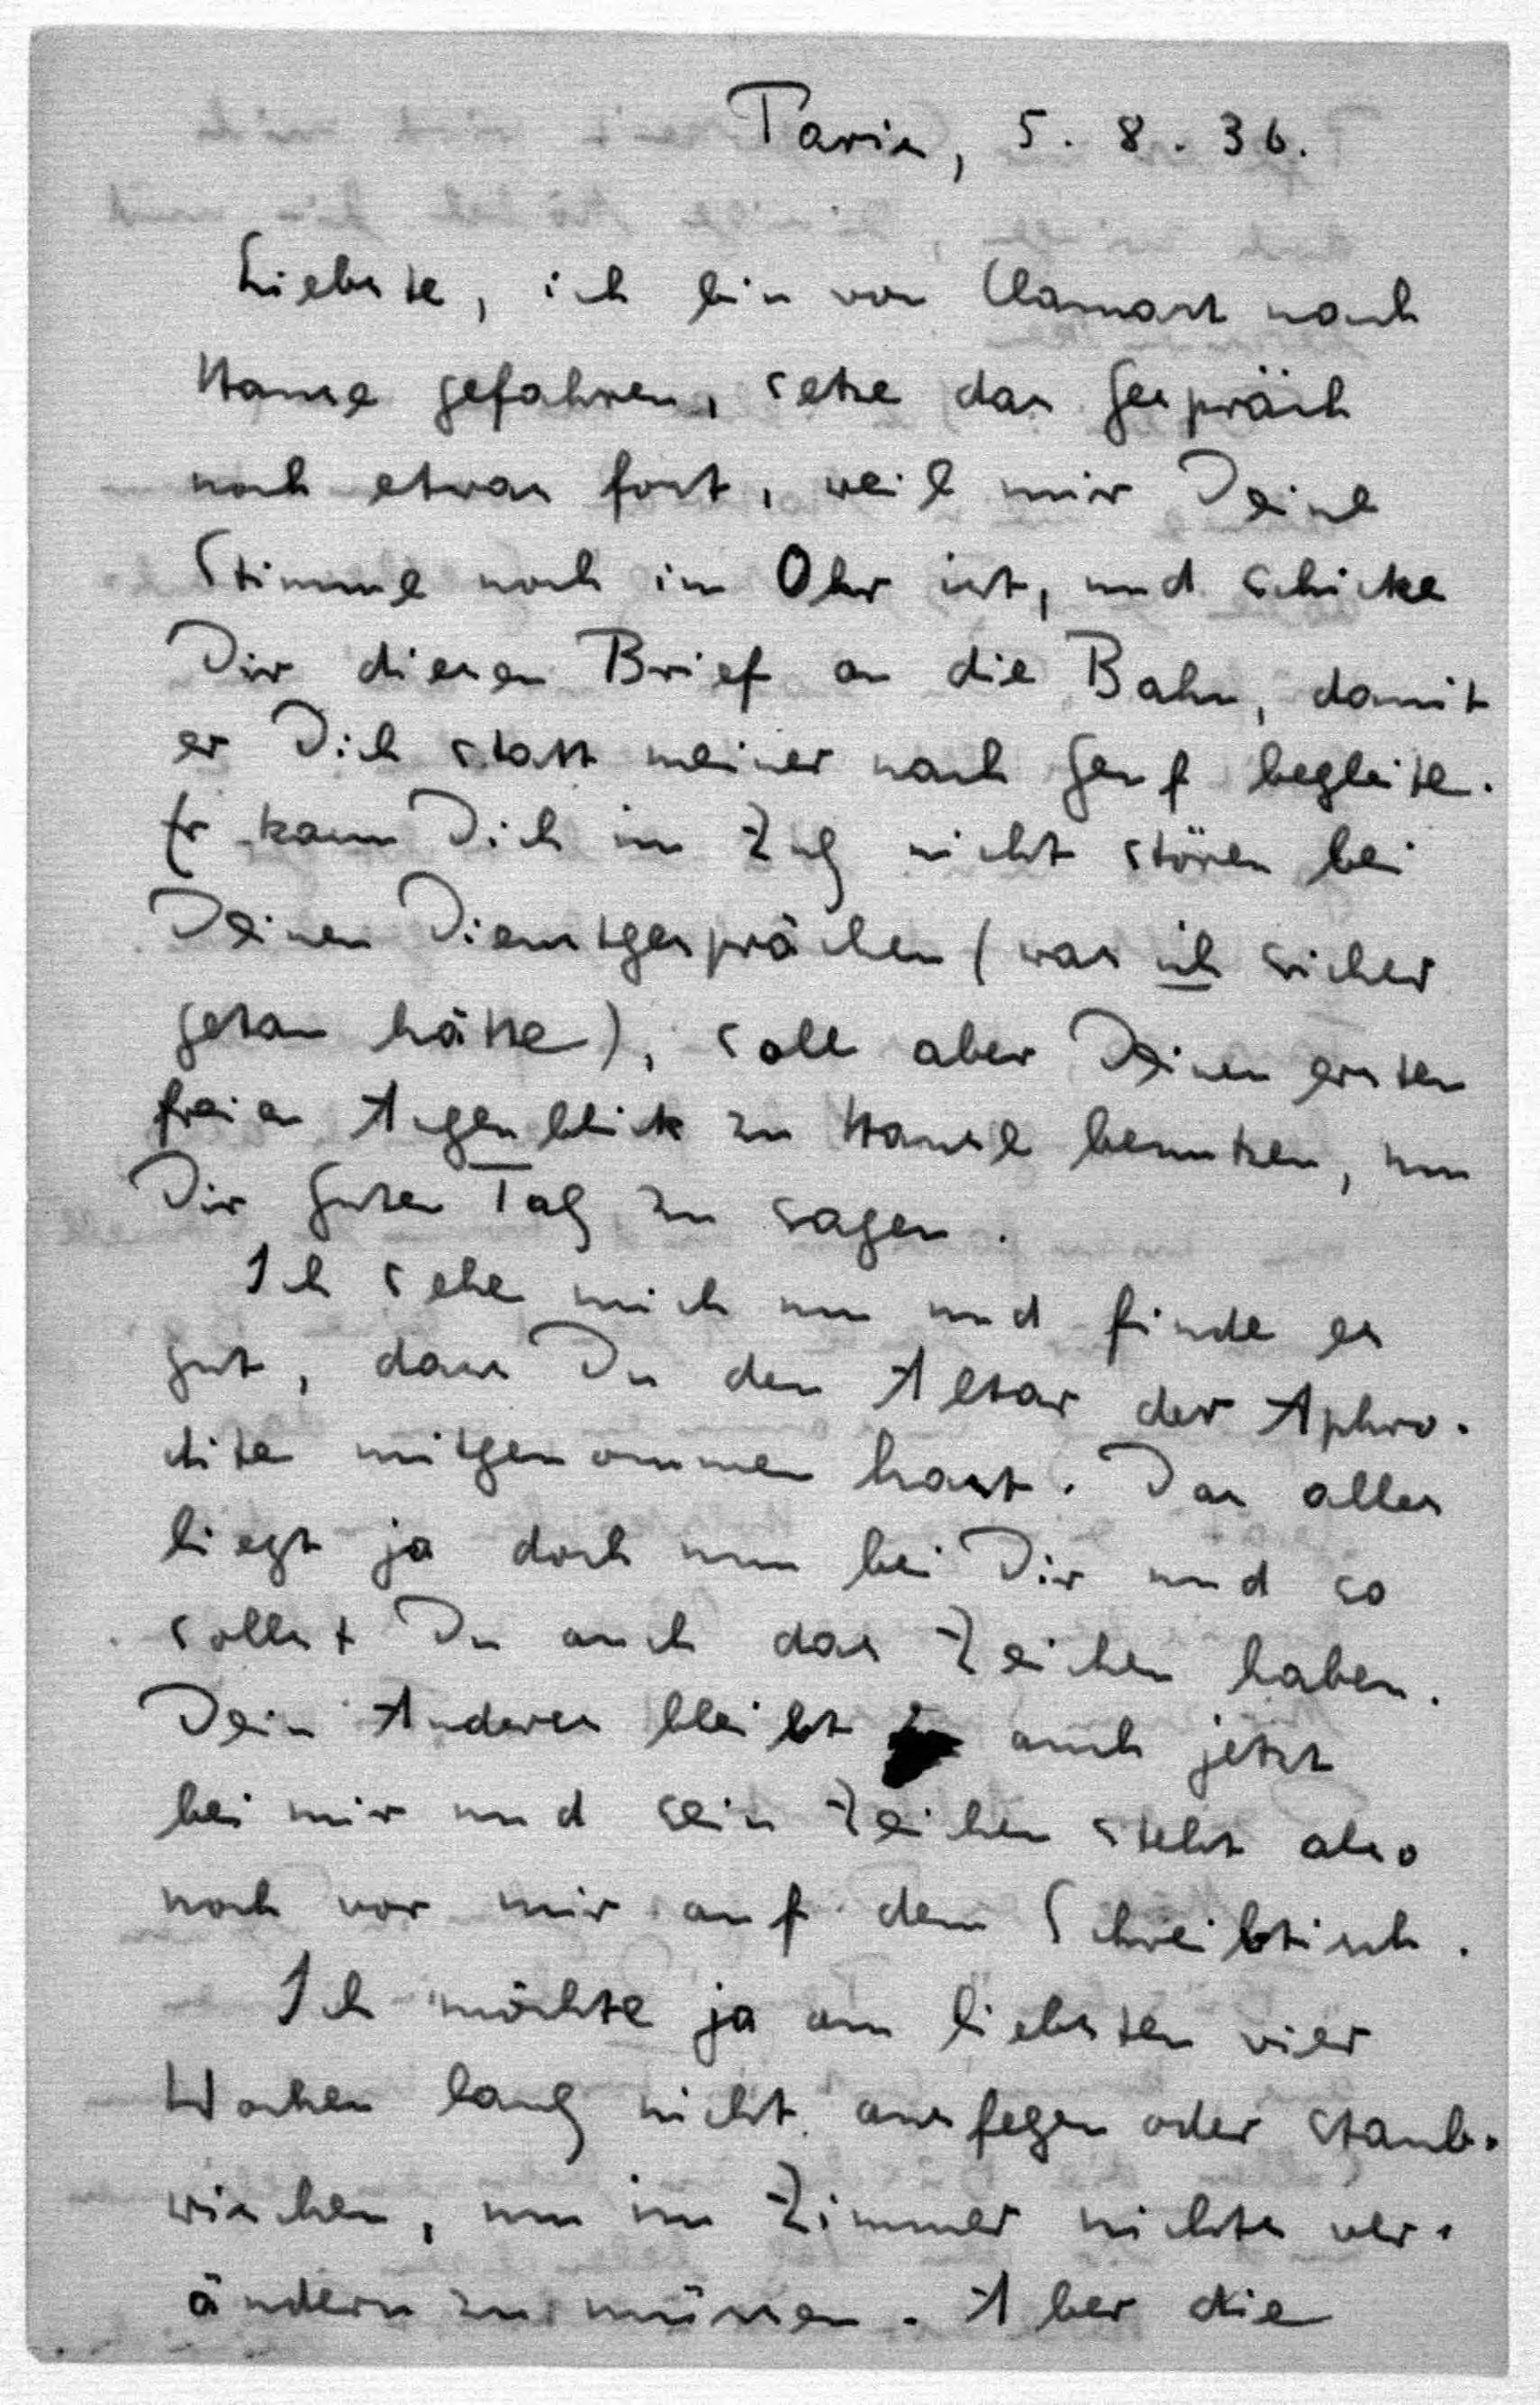 Paris, 5. 8. 36.
Liebste, ich bin von Clamart nach
Hause gefahren, setze das Gespräch
noch etwas fort, weil mir Deine
Stimme noch im Ohr ist, und schicke
Dir diesen Brief an die Bahn, damit
er Dich statt meiner nach Genf begleite.
Er kann Dich im Zug nicht stören bei
Deinen Dienstgesprächen (was ich sicher
getan hätte), soll aber Deinen ersten
freien Augenblick zu Hause benutzen, um
Dir Guten Tag zu sagen.
Ich sehe mich um und finde es
gut, dass Du den Altar der Aphro-
dite mitgenommen hast. Das alles
liegt ja doch nun bei Dir und so
sollst Du auch das Zeichen haben.
Dein Anderes bleibt auch jetzt
bei mir und sein Zeichen steht also
noch vor mir auf dem Schreibtisch.
Ich möchte ja am liebsten vier
Wochen lang nicht ausfegen oder staub-
wischen, um im Zimmer nichts ver-
ändern zu müssen. Aber die